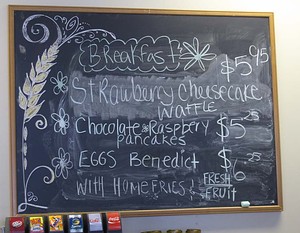 Breakfast
$5.95
Strawberry Cheesecake
Waffle
Chocolate Raspbery
Pancakes
$5.25
EGGS Benedict
WITH HOMEFRIES!
FRESH
FRUIT